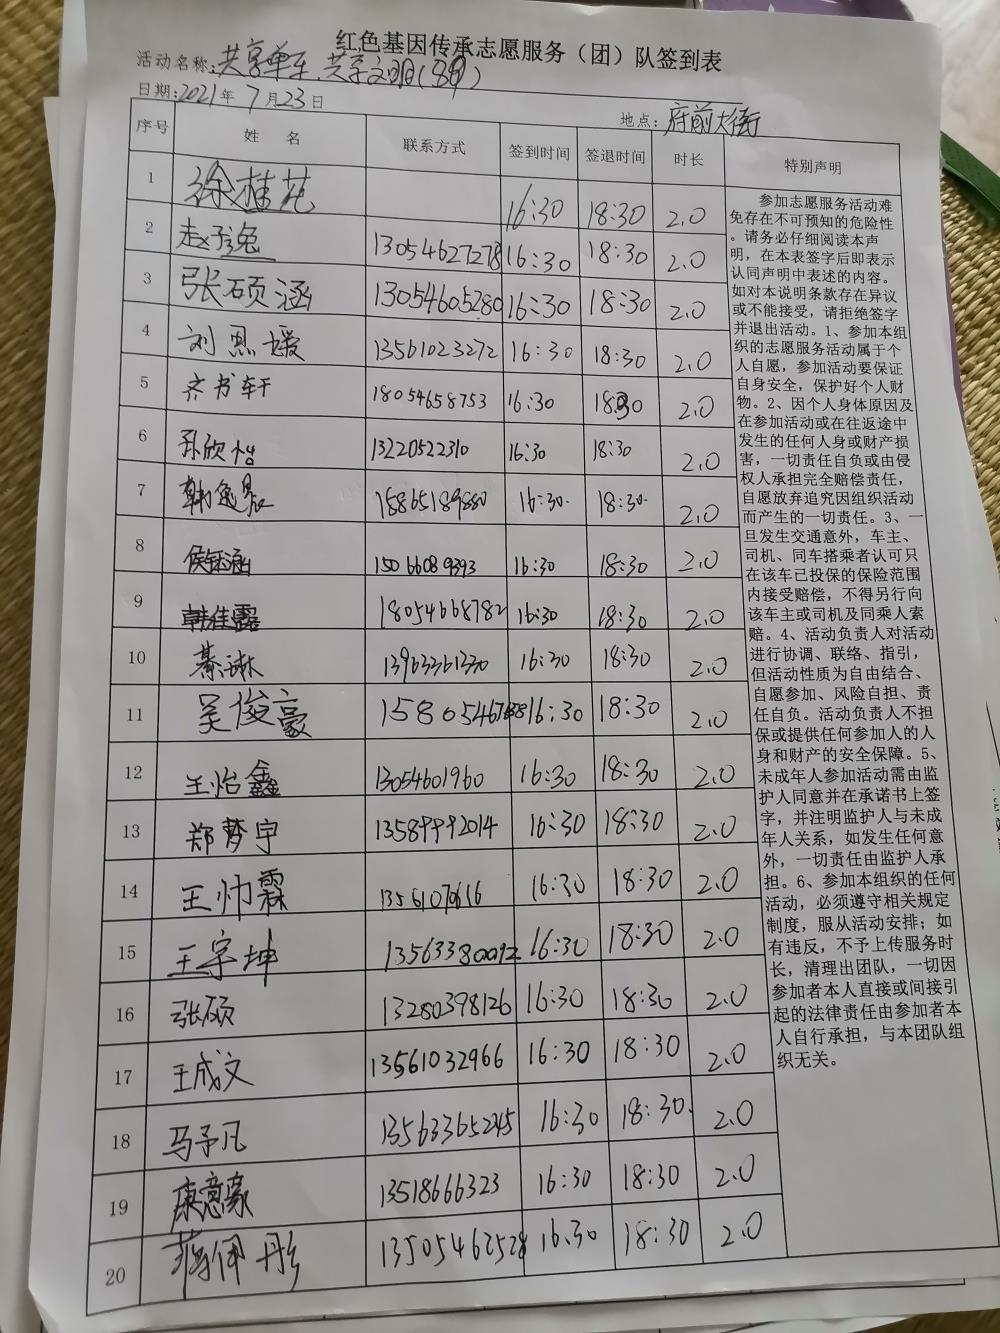 红色基因传承志愿服务（团）队签到表
活动名称：共享单车、共享文明
日期：2021年7月23日 地点：府前大街
序号 姓 名 联系方式 签到时间 签退时间 时长 特别声明
1 徐桂花 16:30 18:30 2.0
2 赵子逸 13054627278 16:30 18:30 2.0
3 张硕涵 13054605280 16:30 18:30 2.0
4 刘恩媛 13561023272 16:30 18:30 2.0
5 齐书轩 18054658753 16:30 18:30 2.0
6 孙欣怡 13220522310 16:30 18:30 2.0
7 韩逸晨 15865189880 16:30 18:30 2.0
8 侯钰涵 16:30 18:30 2.0
9 韩佳露 18054668782 16:30 18:30 2.0
10 綦琳 13963361330 16:30 18:30 2.0
11 吴俊豪 16:30 18:30 2.0
12 王怡鑫 13054601960 16:30 18:30 2.0
13 郑梦宇 13589992014 16:30 18:30 2.0
14 王帅霖 16:30 18:30 2.0
15 王宇坤 16:30 18:30 2.0
16 张硕 13280398126 16:30 18:30 2.0
17 王成文 13561032966 16:30 18:30 2.0
18 马予凡 16:30 18:30 2.0
19 康意豪 13518666323 16:30 18:30 2.0
20 蒋伊彤 13505462528 16:30 18:30 2.0
参加志愿服务活动难
免存在不可预知的危险性
。请务必仔细阅读本声
明，在本表签字后即表示
认同声明中表述的内容。
如对本说明条款存在异议
或不能接受，请拒绝签字
并退出活动。1、参加本组
织的志愿服务活动属于个
人自愿，参加活动要保证
自身安全，保护好个人财
物。2、因个人身体原因及
在参加活动或在往返途中
发生的任何人身或财产损
害，一切责任自负或由侵
权人承担完全赔偿责任，
自愿放弃追究因组织活动
而产生的一切责任。3、一
旦发生交通意外，车主、
司机、同车搭乘者认可只
在该车已投保的保险范围
内接受赔偿，不得另行向
该车主或司机及同乘人索
赔。4、活动负责人对活动
进行协调、联络、指引，
但活动性质为自由结合、
自愿参加、风险自担、责
任自负。活动负责人不担
保或提供任何参加人的人
身和财产的安全保障。5、
未成年人参加活动需由监
护人同意并在承诺书上签
字，并注明监护人与未成
年人关系，如发生任何意
外，一切责任由监护人承
担。6、参加本组织的任何
活动，必须遵守相关规定
制度，服从活动安排；如
有违反，不予上传服务时
长，清理出团队，一切因
参加者本人直接或间接引
起的法律责任由参加者本
人自行承担，与本团队组
织无关。